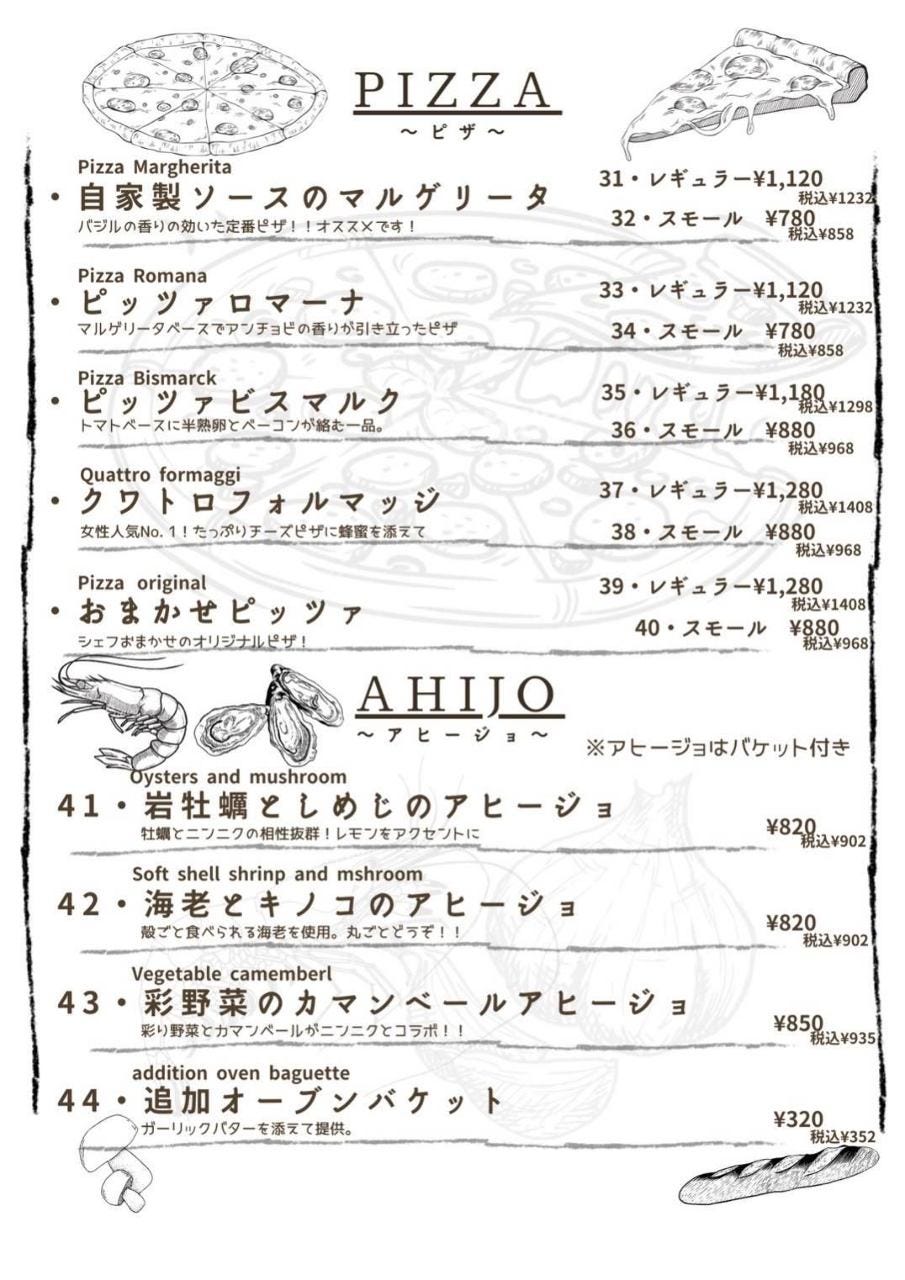 PIZZA
～ピザ～
Pizza Margherita
・自家製ソースのマルゲリータ
バジルの香りの効いた定番ピザ！！オススメです！
31・レギュラー¥1,120
税込¥1232
32・スモール ¥780
税込¥858
Pizza Romana
・ピッツァロマーナ
マルゲリータベースでアンチョビの香りが引き立ったピザ
33・レギュラー¥1,120
税込¥1232
34・スモール ¥780
税込¥858
Pizza Bismarck
・ピッツァビスマルク
トマトベースに半熟卵とベーコンが絡む一品。
35・レギュラー¥1,180
税込¥1298
36・スモール ¥880
税込¥968
Quattro formaggi
・クワトロフォルマッジ
女性人気No.1！たっぷりチーズピザに蜂蜜を添えて
37・レギュラー¥1,280
税込¥1408
38・スモール ¥880
税込¥968
Pizza original
・おまかせピッツァ
シェフおまかせのオリジナルピザ！
39・レギュラー¥1,280
税込¥1408
40・スモール ¥880
税込¥968
AHIJO
～アヒージョ～
※アヒージョはバケット付き
Oysters and mushroom
41・岩牡蠣としめじのアヒージョ
牡蠣とニンニクの相性抜群！レモンをアクセントに
¥820
税込¥902
Soft shell shrinp and mshroom
42・海老とキノコのアヒージョ
殻ごと食べられる海老を使用。丸ごとどうぞ！！
¥820
税込¥902
Vegetable camemberl
43・彩野菜のカマンベールアヒージョ
彩り野菜とカマンベールがニンニクとコラボ！！
¥850
税込¥935
addition oven baguette
44・追加オーブンバケット
ガーリックバターを添えて提供。
¥320
税込¥352